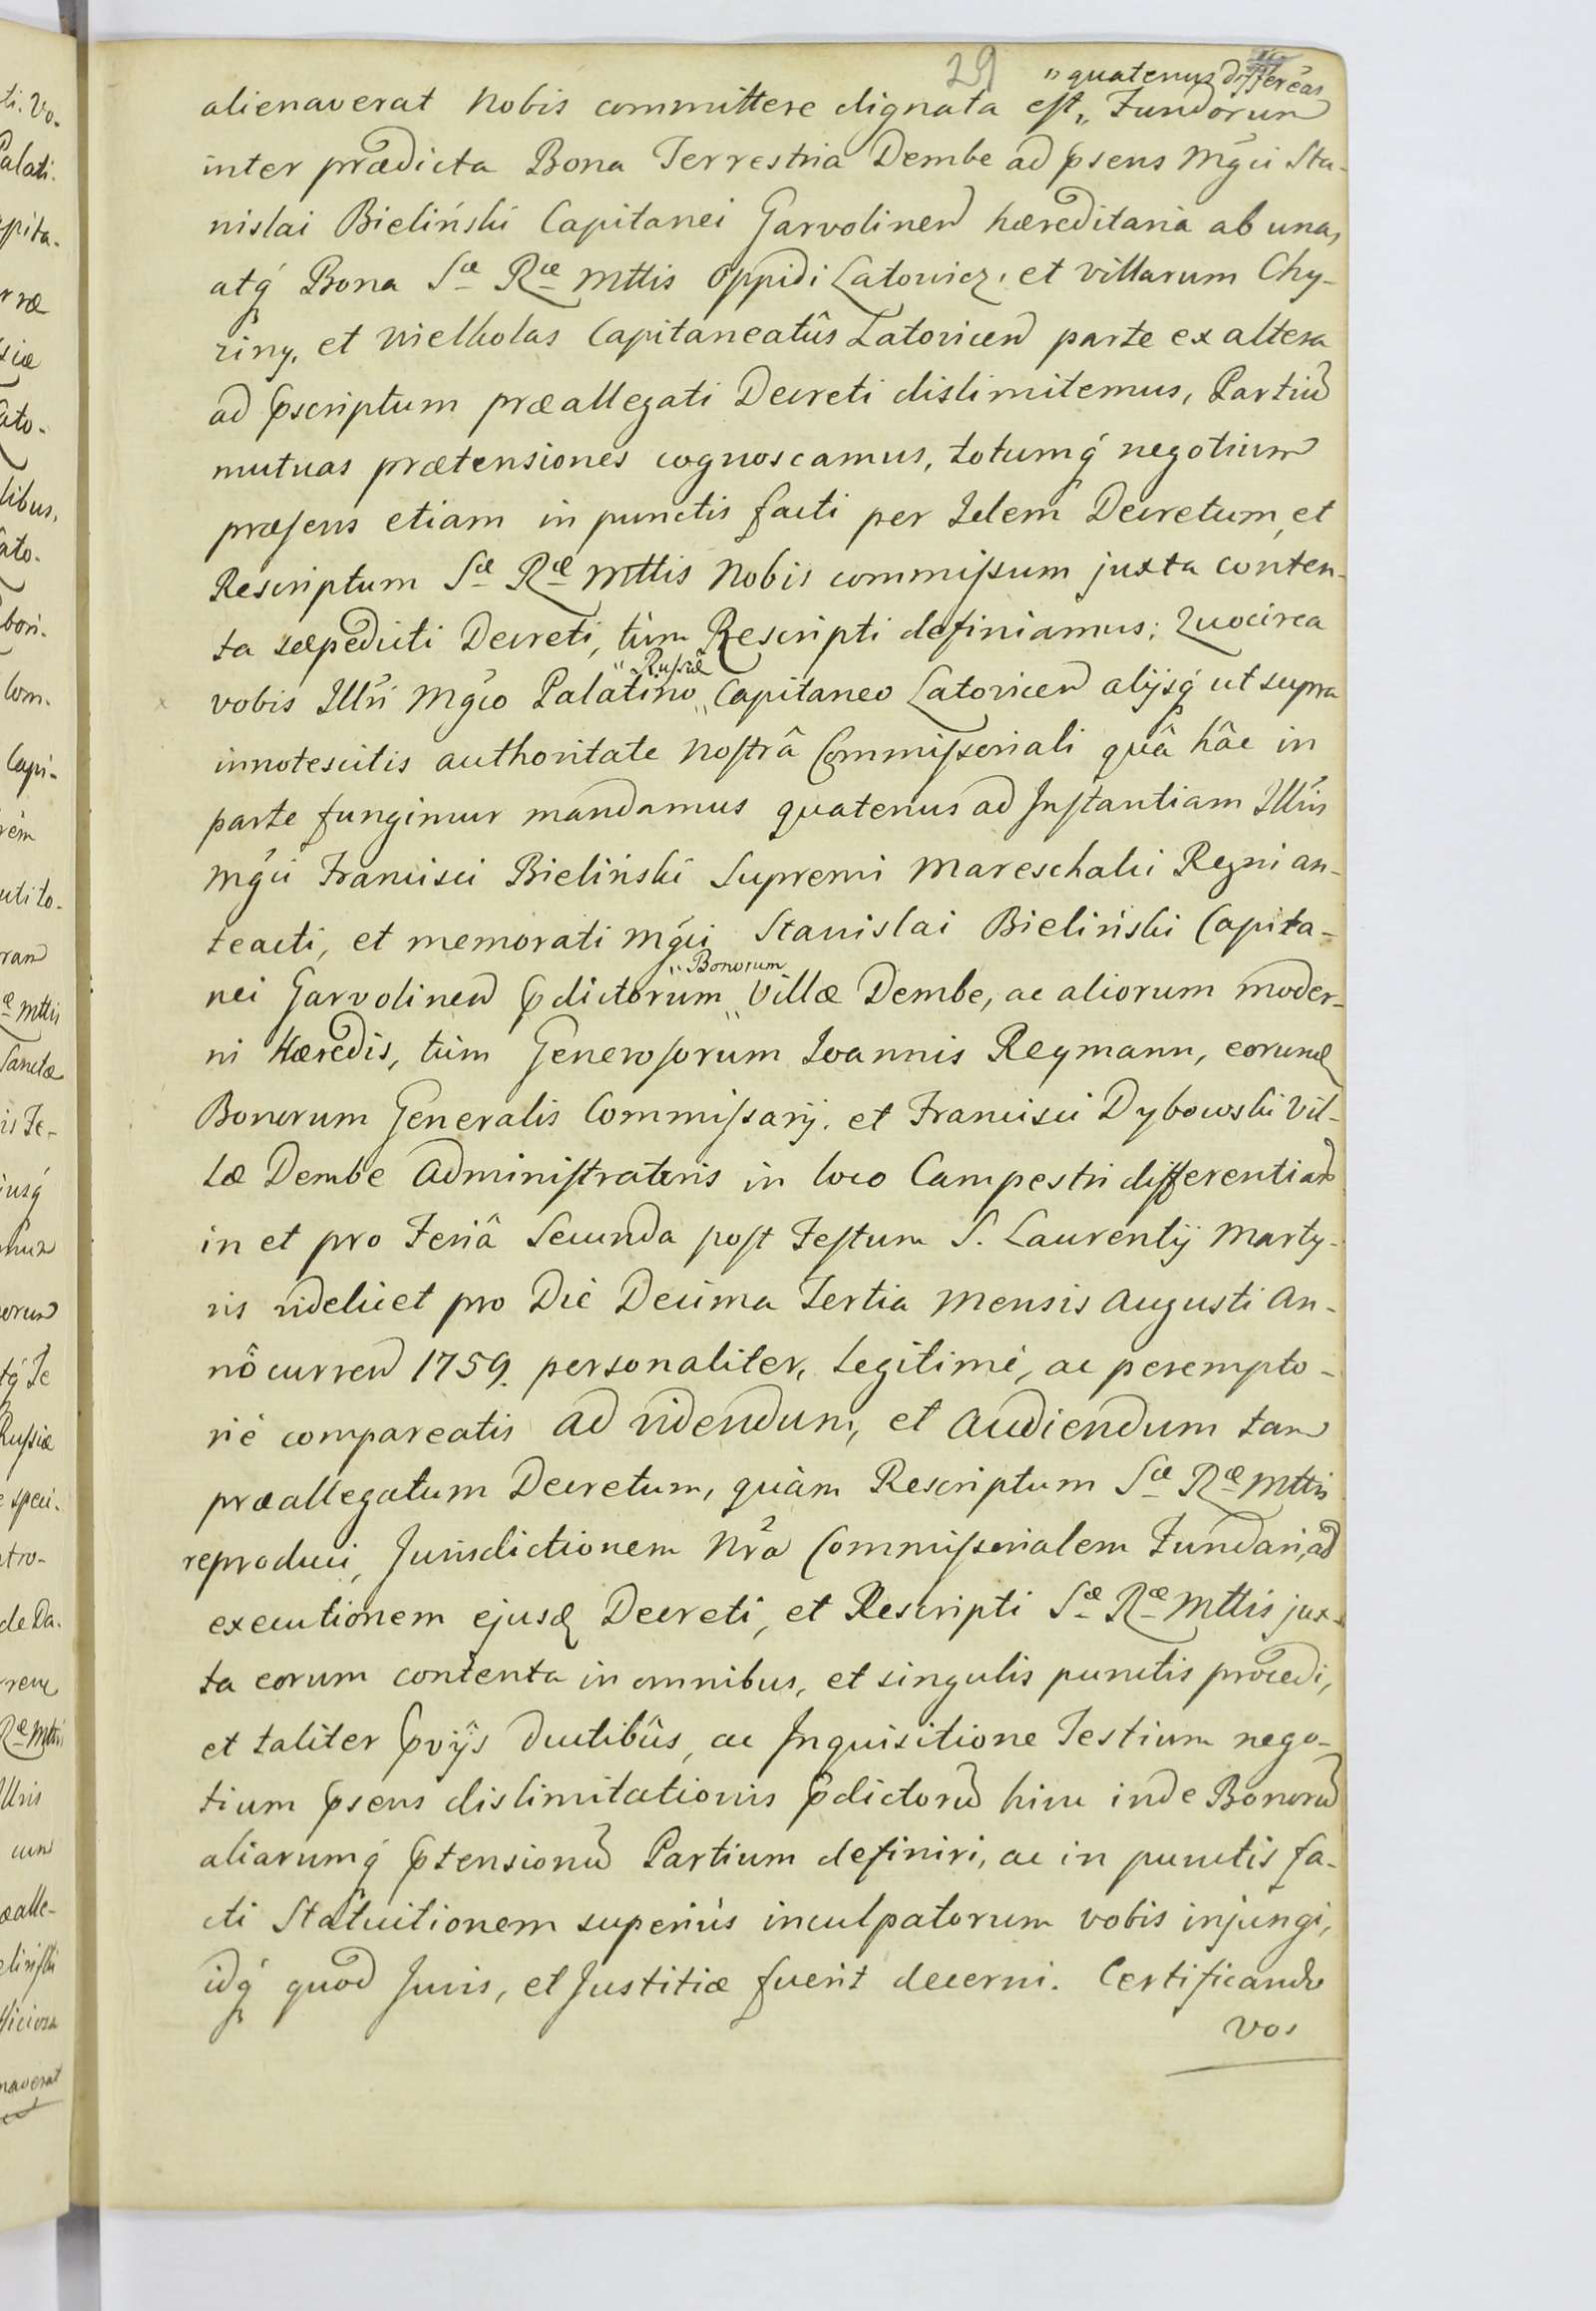 29
"quatenus differeas
alienaverat Nobis committere dignata est,, Fundorum
inter prædicta Bona Terrestria Dembe ad psens Mgci Sta-
nislai Bieliński Capitanei Garvolinen hæreditaria ab una,
atq́ Bona Sæ Ræ Mttis Oppidi Latowicz, et villarum Chy-
ziny, et Wielholas Capitaneatûs Latovicen parte ex altera
ad pscriptum præallegati Decreti dislimitemus, Partiu
mutuas prætensiones cognoscamus, totumq́ negotium
præsens etiam in punctis facti per Idem Decretum, et
Rescriptum Sæ Ræ Mttis Nobis commissum juxta conten-
ta sæpedicti Decreti, tùm Rescripti definiamus; Quocirca
"Russiæ
vobis Illri Mgco Palatino,, Capitaneo Latovicen alijsq́ ut supra
innotescitis authoritate nostrâ Commissoriali quâ hâc in
parte fungimur mandamus quatenus ad Instantiam Illris
Mgci Francisci Bieliński Supremi Mareschalci Regni an-
teacti, et memorati Mgci Stanislai Bieliński Capita-
"Bonorum
nei Garvolinen pdictorum,, Villæ Dembe, ac aliorum moder-
ni Hæredis, tùm Generosorum Ioannis Reymann, eorund
Bonorum Generalis Commissarij, et Francisci Dybowski Vil-
læ Dembe Administratoris in loco Campestri differentiar
in et pro Feriâ Secunda post Festum S. Laurentij Marty-
ris videlicet pro Die Decima Tertia Mensis Augusti An-
nô curren 1759. personaliter, Legitimè, ac perempto-
riè compareatis ad videndum, et Audiendum tam
præallegatum Decretum, quàm Rescriptum Sæ Ræ Mttis
reproduci, Jurisdictionem Nra Commissorialem Fundari, ad
executionem ejusd Decreti, et Rescripti Sæ Ræ Mttis jux-
ta eorum contenta in omnibus, et singulis punctis procedi,
et taliter pvijs ductibûs, ac Inquisitione Testium nego-
tium psens dislimitationis pdictoru hinc inde Bonoru
aliarumq́ ptensionu Partium definiri, ac in punctis fa-
cti Statuitionem superiùs inculpatorum vobis injungi,
idq́ quod Juris, et Justitiæ fuerit decerni. Certificando
vos